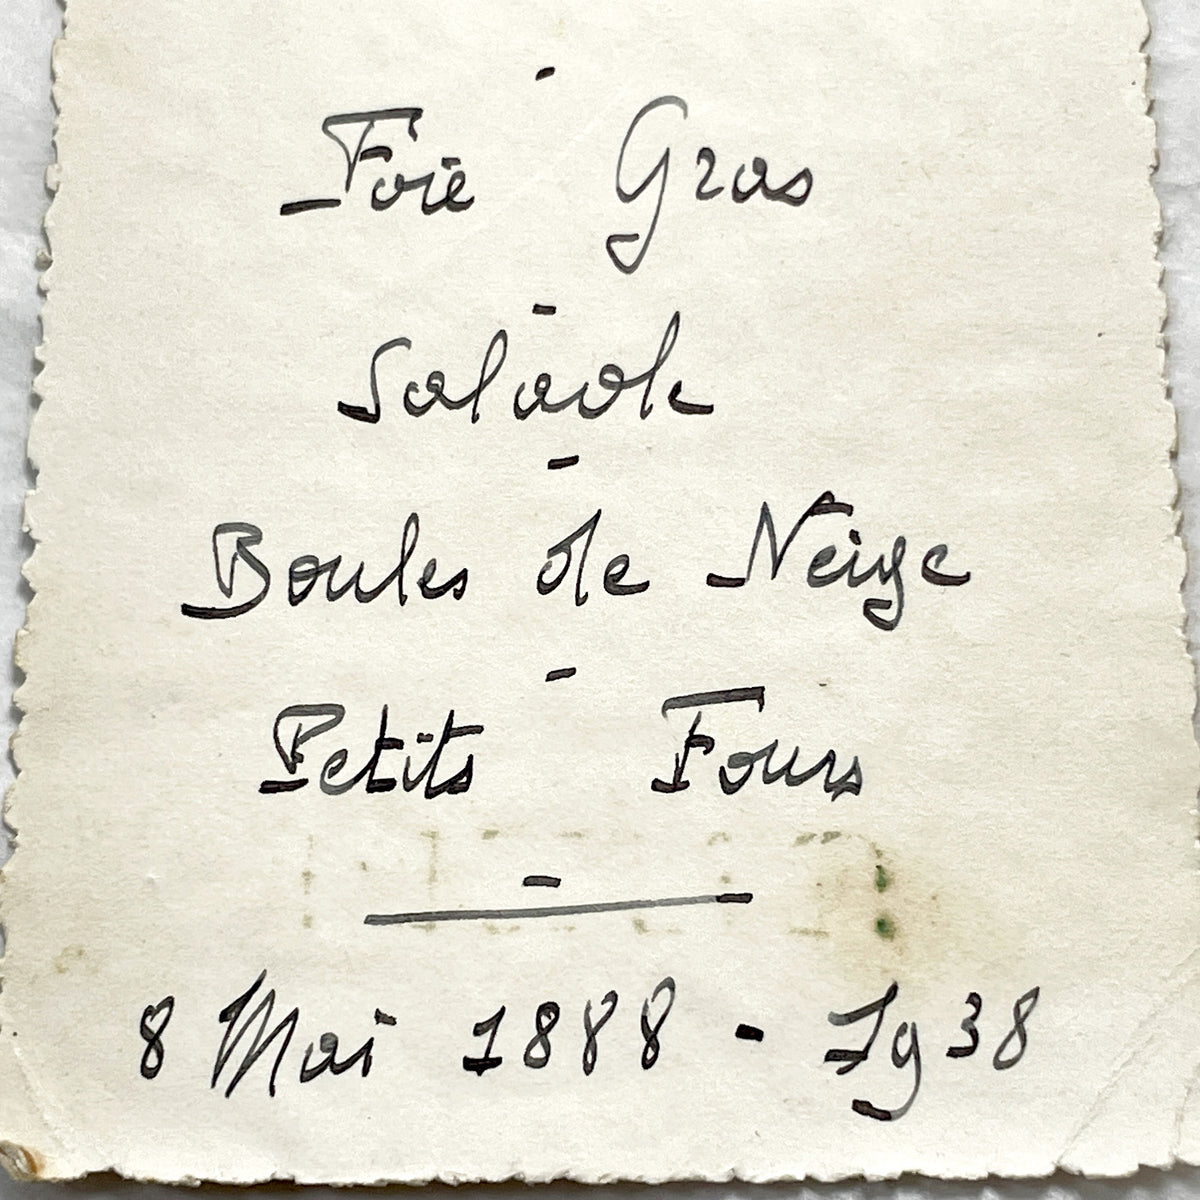 -
Foie Gras
-
Salade
-
Boules de Neige
-
Petits Fours
-
8 Mai 1888 - 1938